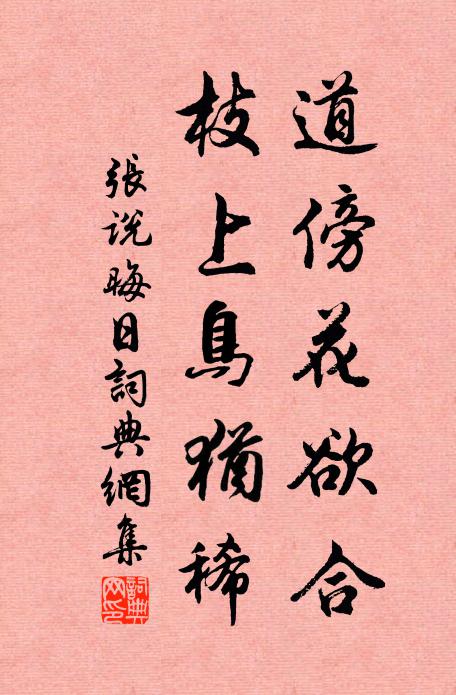 道傍花欲合
枝上鳥猶稀
張說晦日詞典網集
詞典網印